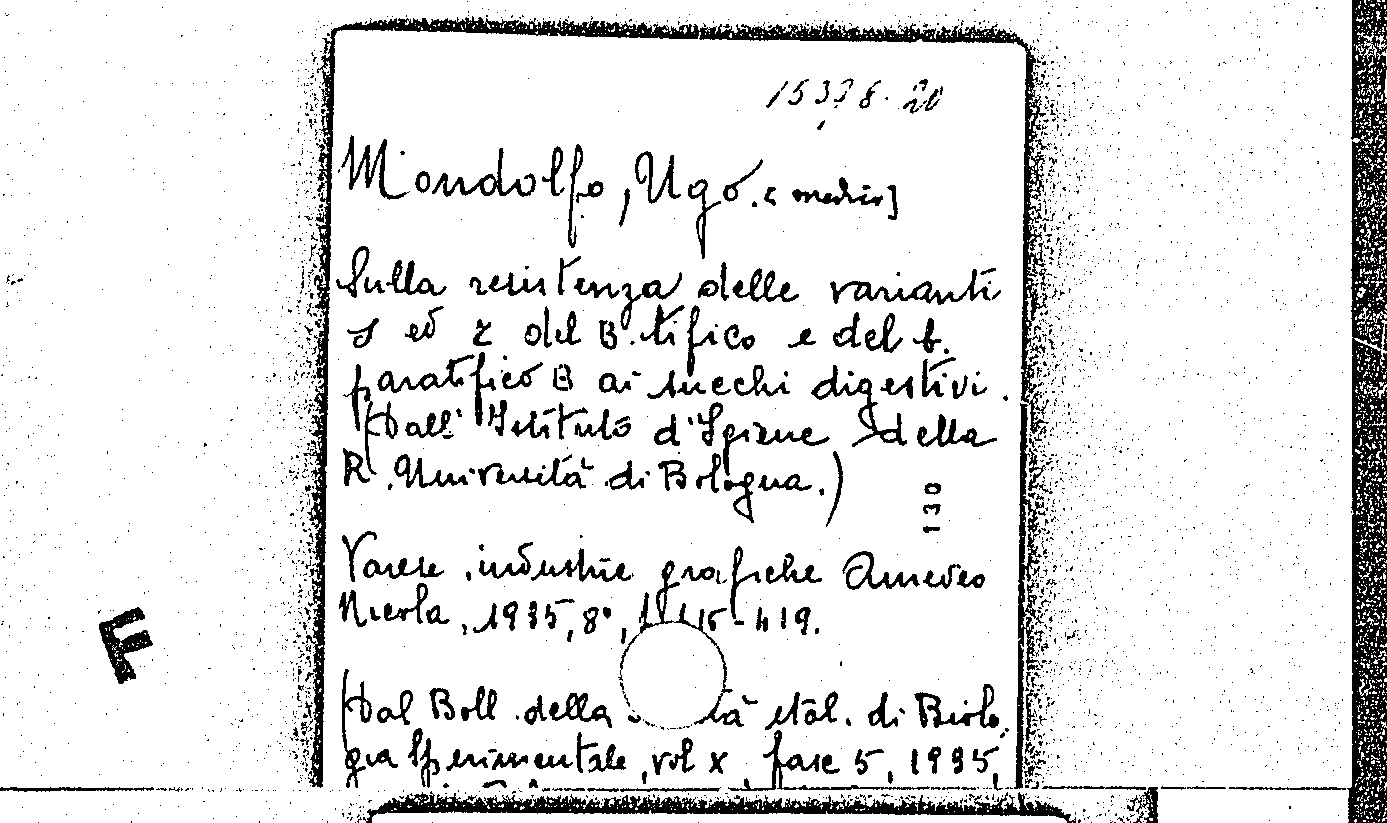 15398.20
Mondolfo, Ugo. [medico]
Sulla resistenza delle varianti
S ed R del B. tifico e del b.
paratifico B ai succhi digestivi.
(Dall' Istituto d'Igiene della
R. Università di Bologna.)
130
Varese, industrie grafiche Amedeo
Nicola, 1935, 8°, 415-419.
F
(Dal Boll. della ital. di Biolo.
gia Sperimentale, vol X, fasc 5, 1935,